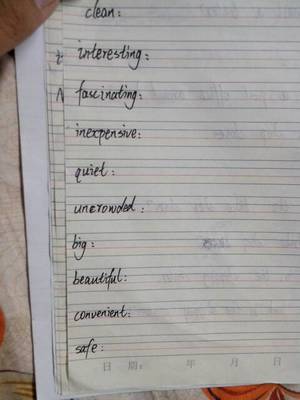 clean:
interesting:
fascinating:
inexpensive:
quiet:
uncrowded:
big:
beautiful:
convenient:
safe:
日 期: 年 月 日